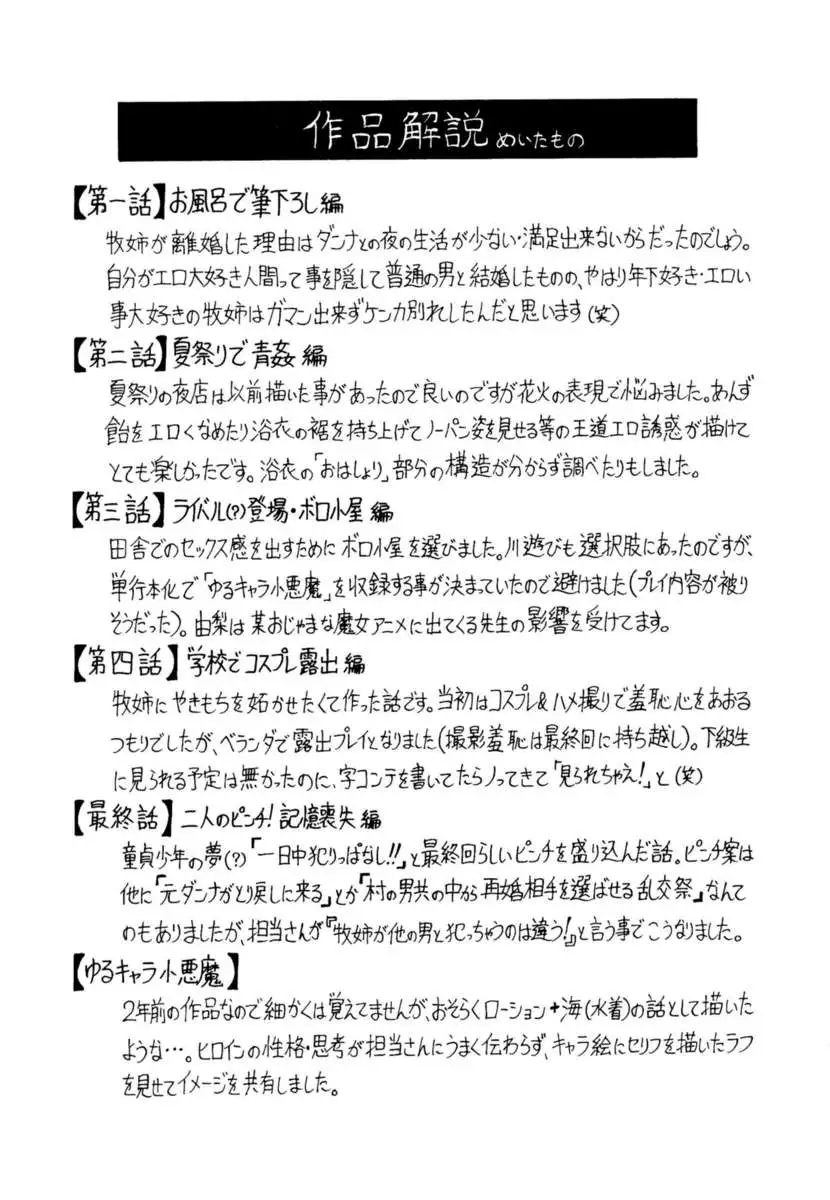 作品解説 めいたもの
【第一話】お風呂で筆下ろし編
牧姉が離婚した理由はダンナとの夜の生活が少ない・満足出来ないからだったのでしょう。
自分がエロ大好き人間って事を隠して普通の男と結婚したものの、やはり年下好き・エロい
事大好きの牧姉はガマン出来ずケンカ別れしたんだと思います(笑)
【第二話】夏祭りで青姦編
夏祭りの夜店は以前描いた事があったので良いのですが花火の表現で悩みました。あんず
飴をエロくなめたり浴衣の裾を持ち上げてノーパン姿を見せる等の王道エロ誘惑が描けて
とても楽しかったです。浴衣の「おはしょり」部分の構造が分からず調べたりもしました。
【第三話】ライバル(?)登場・ボロ小屋編
田舎でのセックス感を出すためにボロ小屋を選びました。川遊びも選択肢にあったのですが、
単行本化で「ゆるキャラ小悪魔」を収録する事が決まっていたので避けました(プレイ内容が被り
そうだった)。由梨は某おじゃまな魔女アニメに出てくる先生の影響を受けてます。
【第四話】学校でコスプレ露出編
牧姉にやきもちを妬かせたくて作った話です。当初はコスプレ&ハメ撮りで羞恥心をあおる
つもりでしたが、ベランダで露出プレイとなりました(撮影羞恥は最終回に持ち越し)。下級生
に見られる予定は無かったのに、字コンテを書いてたらノってきて「見られちゃえ!」と(笑)
【最終話】二人のピンチ!記憶喪失編
童貞少年の夢(?)「一日中犯りっぱなし!!」と最終回らしいピンチを盛り込んだ話。ピンチ案は
他に「元ダンナがとり戻しに来る」とか「村の男共の中から再婚相手を選ばせる乱交祭」なんて
のもありましたが、担当さんが『牧姉が他の男と犯っちゃうのは違う!』と言う事でこうなりました。
【ゆるキャラ小悪魔】
2年前の作品なので細かくは覚えてませんが、おそらくローション+海(水着)の話として描いた
ような…。ヒロインの性格・思考が担当さんにうまく伝わらず、キャラ絵にセリフを描いたラフ
を見せてイメージを共有しました。